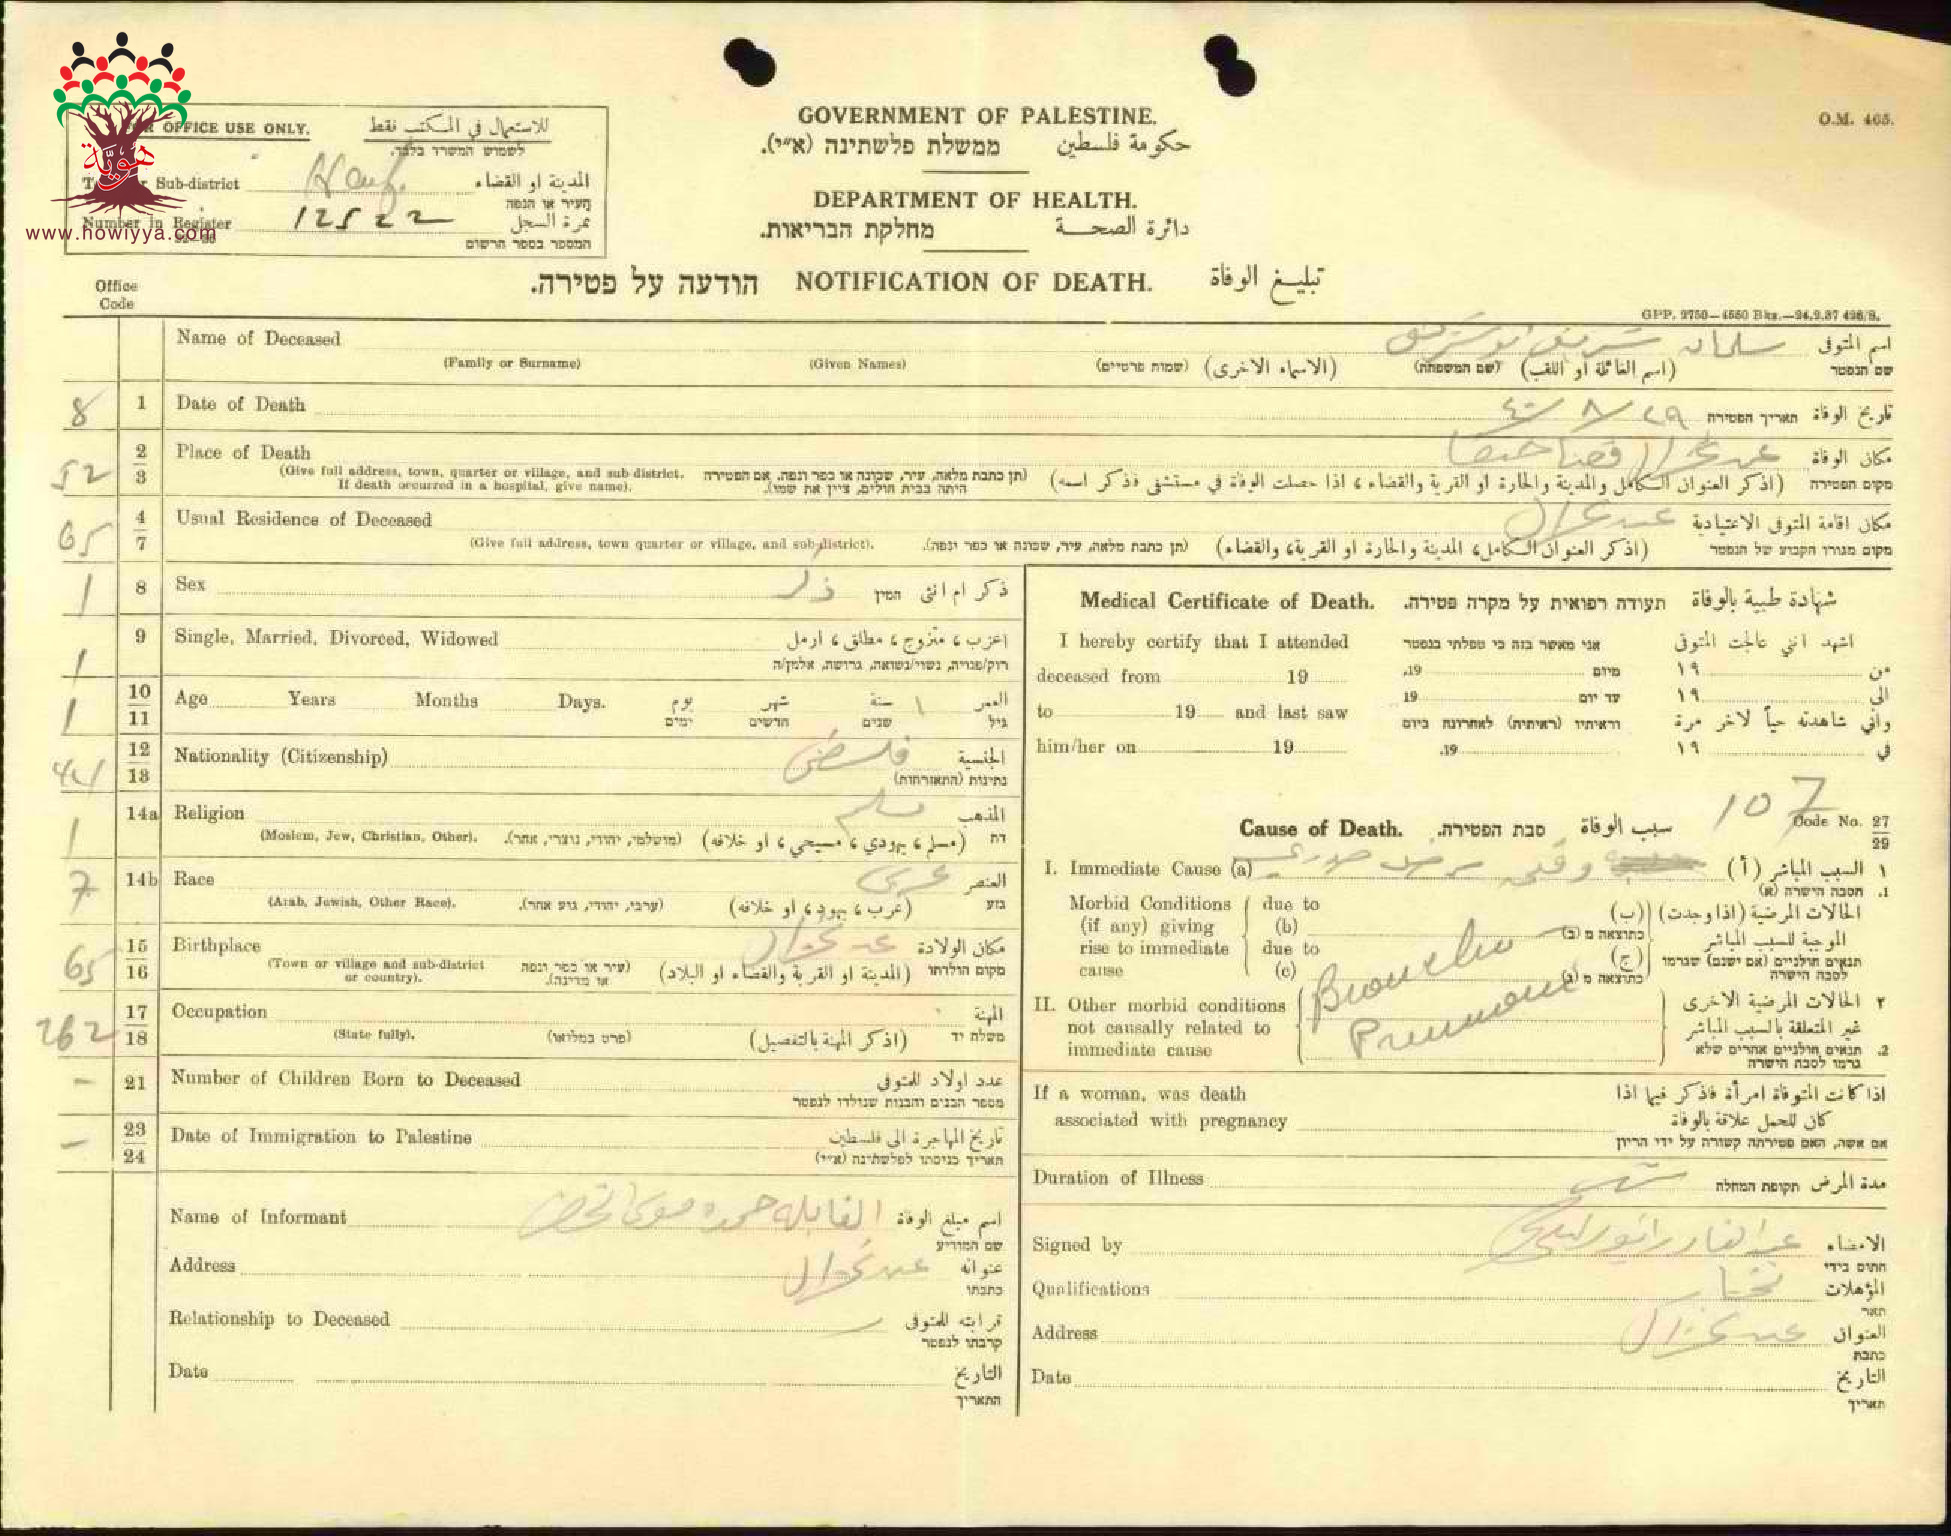 GOVERNMENT OF PALESTINE.
ממשלת פלשתינה (א״י). حكومة فلسطين
DEPARTMENT OF HEALTH.
מחלקת הבריאות. دائرة الصحة
הודעה על פטירה. NOTIFICATION OF DEATH. تبليغ الوفاة
O.M. 465.
GPP. 2750—4550 Bks.—24.9.37 426/S.
هوية
www.howiyya.com
FOR OFFICE USE ONLY. للاستعمال في المكتب نقط
לשמוש המשרד בלבד.
Sub-district المدينة او القضاء
העיר או הנפה
Number in Register 12522 نمرة السجل
המספר בספר הרשום
Office
Code
Name of Deceased سلمان شريف ابو شريف اسم المتوفى
(Family or Surname) (Given Names) (שמות פרטיים) (الاسماء الاخرى) (שם המשפחה) (اسم العائلة او اللقب) שם הנפטר
8 1 Date of Death ٢٩ / ٨ / ٤٠ תאריך הפטירה تاريخ الوفاة
52 2 3 Place of Death عين غزال قضا حيفا مكان الوفاة
(Give full address, town, quarter or village, and sub district. If death occurred in a hospital, give name).
(תן כתבת מלאה, עיר, שכונה או כפר ונפה. אם הפטירה היתה בבית חולים, ציין את שמו).
(اذكر العنوان الكامل والمدينة والحارة او القرية والقضاء، اذا حصلت الوفاة في مستشفى فذكر اسمه) מקום הפטירה
65 4 7 Usual Residence of Deceased عين غزال مكان اقامة المتوفى الاعتيادية
(Give full address, town quarter or village, and sub-district). (תן כתבת מלאה, עיר, שכונה או כפר ונפה). (اذكر العنوان الكامل، المدينة والحارة او القرية، والقضاء) מקום מגורו הקבוע של הנפטר
1 8 Sex ذكر המין ذكر ام انثى
1 9 Single, Married, Divorced, Widowed اعزب، متزوج، مطلق، ارمل
רוק/פנויה, נשוי/נשואה, גרושה, אלמן/ה
1 10 11 Age Years Months Days. يوم شهر سنة ١ العمر
ימים חדשים שנים גיל
12 13 Nationality (Citizenship) فلسطيني الجنسية
נתינות (התאזרחות)
1 14a Religion مسلم المذهب
(Moslem, Jew, Christian, Other). (מושלמי, יהודי, נוצרי, אחר). (مسلم، يهودي، مسيحي، او خلافه) דת
7 14b Race عربي العنصر
(Arab, Jewish, Other Race). (ערבי, יהודי, גזע אחר). (عرب، يهود، او خلافه) גזע
65 15 16 Birthplace عين غزال مكان الولادة
(Town or village and sub-district or country). (עיר או כפר ונפה או מדינה). (المدينة او القرية والقضاء او البلاد) מקום הולדתו
262 17 18 Occupation المهنة
(State fully). (פרט במלואו) (اذكر المهنة بالتفصيل) משלח יד
- 21 Number of Children Born to Deceased عدد اولاد للمتوفى
מספר הבנים והבנות שנולדו לנפטר
- 23 24 Date of Immigration to Palestine تاريخ المهاجرة الى فلسطين
תאריך כניסתו לפלשתינה (א״י)
Name of Informant القابله حمده موسى اسم مبلغ الوفاة
שם המודיע
Address عين غزال عنوانه
כתבתו
Relationship to Deceased قرابته للمتوفى
קרבתו לנפטר
Date التاريخ
התאריך
Medical Certificate of Death. תעודה רפואית על מקרה פטירה. شهادة طبية بالوفاة
I hereby certify that I attended אני מאשר בזה כי טפלתי בנפטר اشهد انني عالجت المتوفى
deceased from 19 19, מיום ١٩ من
to 19 and last saw 19 עד יום ١٩ الى
וראיתיו (ראיתיה) לאחרונה ביום واني شاهدته حياً لآخر مرة
him/her on 19 19. ١٩ في
107
Cause of Death. סבת הפטירה. سبب الوفاة Code No. 27 29
I. Immediate Cause (a) (أ) السبب المباشر ١
הסבה הישרה (א) .1
Morbid Conditions (if any) giving rise to immediate cause
due to (b) due to (c)
(ب) כתוצאה מ (ב) (ج) כתוצאה מ (ג)
الحالات المرضية (اذا وجدت) الموجبة للسبب المباشر
תנאים חולניים (אם ישנם) שגרמו לסבה הישרה
Broncho
Pneumonia
II. Other morbid conditions not causally related to immediate cause
٢ الحالات المرضية الاخرى غير المتعلقة بالسبب المباشر
2. תנאים חולניים אחרים שלא גרמו לסבה הישרה
If a woman, was death associated with pregnancy
اذا كانت المتوفاة امرأة فاذكر فيها اذا كان للحمل علاقة بالوفاة
אם אשה, האם פטירתה קשורה על ידי הריון
Duration of Illness شهر תקופת המחלה مدة المرض
Signed by الامضاء
חתום בידי
Qualifications مختار المؤهلات
תאר
Address عين غزال العنوان
כתבת
Date التاريخ
תאריך